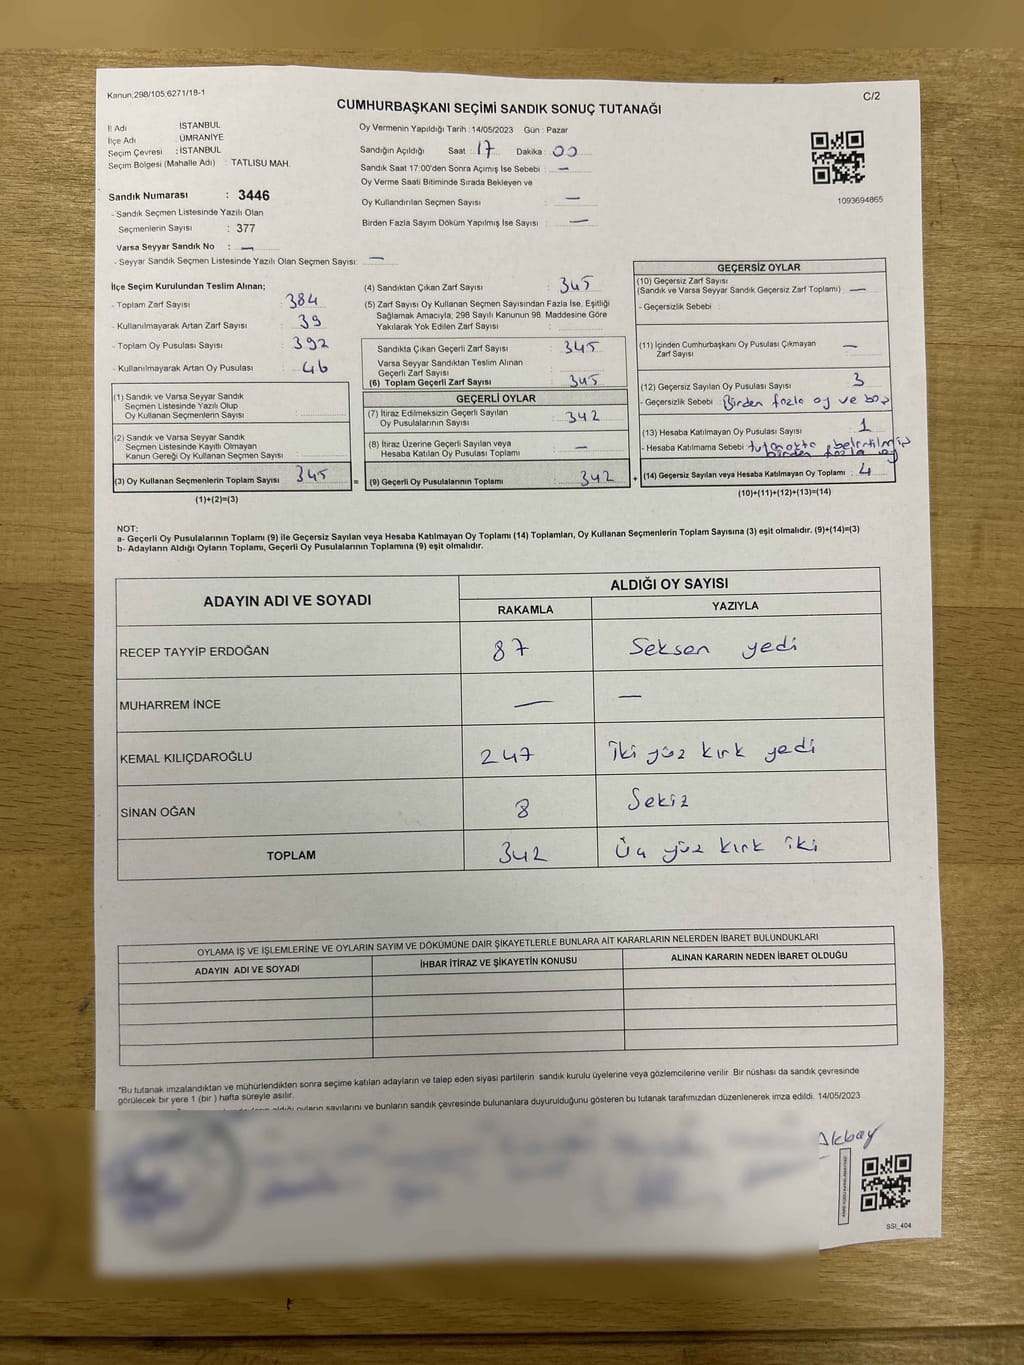 Kanun:298/105,6271/18-1
C/2
CUMHURBAŞKANI SEÇİMİ SANDIK SONUÇ TUTANAĞI
İl Adı : İSTANBUL
İlçe Adı : ÜMRANİYE
Seçim Çevresi : İSTANBUL
Seçim Bölgesi (Mahalle Adı) : TATLISU MAH.
Oy Vermenin Yapıldığı Tarih : 14/05/2023 Gün : Pazar
Sandığın Açıldığı Saat : 17 Dakika : 00
Sandık Saat 17:00'den Sonra Açımış İse Sebebi : —
Oy Verme Saati Bitiminde Sırada Bekleyen ve
Oy Kullandırılan Seçmen Sayısı : —
Birden Fazla Sayım Döküm Yapılmış İse Sayısı : —
1093694865
Sandık Numarası : 3446
- Sandık Seçmen Listesinde Yazılı Olan
Seçmenlerin Sayısı : 377
Varsa Seyyar Sandık No : —
- Seyyar Sandık Seçmen Listesinde Yazılı Olan Seçmen Sayısı: —
İlçe Seçim Kurulundan Teslim Alınan;
- Toplam Zarf Sayısı : 384
- Kullanılmayarak Artan Zarf Sayısı : 39
- Toplam Oy Pusulası Sayısı : 392
- Kullanılmayarak Artan Oy Pusulası : 46
(1) Sandık ve Varsa Seyyar Sandık
Seçmen Listesinde Yazılı Olup
Oy Kullanan Seçmenlerin Sayısı :
(2) Sandık ve Varsa Seyyar Sandık
Seçmen Listesinde Kayıtlı Olmayan
Kanun Gereği Oy Kullanan Seçmen Sayısı :
(3) Oy Kullanan Seçmenlerin Toplam Sayısı : 345
(1)+(2)=(3)
(4) Sandıktan Çıkan Zarf Sayısı : 345
(5) Zarf Sayısı Oy Kullanan Seçmen Sayısından Fazla İse, Eşitliği
Sağlamak Amacıyla; 298 Sayılı Kanunun 98. Maddesine Göre
Yakılarak Yok Edilen Zarf Sayısı :
Sandıkta Çıkan Geçerli Zarf Sayısı : 345
Varsa Seyyar Sandıktan Teslim Alınan
Geçerli Zarf Sayısı :
(6) Toplam Geçerli Zarf Sayısı : 345
GEÇERLİ OYLAR
(7) İtiraz Edilmeksizin Geçerli Sayılan
Oy Pusulalarının Sayısı : 342
(8) İtiraz Üzerine Geçerli Sayılan veya
Hesaba Katılan Oy Pusulası Toplamı : —
= (9) Geçerli Oy Pusulalarının Toplamı : 342
GEÇERSİZ OYLAR
(10) Geçersiz Zarf Sayısı
(Sandık ve Varsa Seyyar Sandık Geçersiz Zarf Toplamı) : —
- Geçersizlik Sebebi :
(11) İçinden Cumhurbaşkanı Oy Pusulası Çıkmayan
Zarf Sayısı : —
(12) Geçersiz Sayılan Oy Pusulası Sayısı : 3
- Geçersizlik Sebebi : Birden fazla oy ve boş
(13) Hesaba Katılmayan Oy Pusulası Sayısı : 1
- Hesaba Katılmama Sebebi : tutanakta belirtilmiş
birden fazla oy
+ (14) Geçersiz Sayılan veya Hesaba Katılmayan Oy Toplamı : 4
(10)+(11)+(12)+(13)=(14)
NOT:
a- Geçerli Oy Pusulalarının Toplamı (9) ile Geçersiz Sayılan veya Hesaba Katılmayan Oy Toplamı (14) Toplamları, Oy Kullanan Seçmenlerin Toplam Sayısına (3) eşit olmalıdır. (9)+(14)=(3)
b- Adayların Aldığı Oyların Toplamı, Geçerli Oy Pusulalarının Toplamına (9) eşit olmalıdır.
ADAYIN ADI VE SOYADI
ALDIĞI OY SAYISI
RAKAMLA YAZIYLA
RECEP TAYYİP ERDOĞAN 87 Seksen yedi
MUHARREM İNCE — —
KEMAL KILIÇDAROĞLU 247 İki yüz kırk yedi
SİNAN OĞAN 8 Sekiz
TOPLAM 342 Üç yüz kırk iki
OYLAMA İŞ VE İŞLEMLERİNE VE OYLARIN SAYIM VE DÖKÜMÜNE DAİR ŞİKAYETLERLE BUNLARA AİT KARARLARIN NELERDEN İBARET BULUNDUKLARI
ADAYIN ADI VE SOYADI İHBAR İTİRAZ VE ŞİKAYETİN KONUSU ALINAN KARARIN NEDEN İBARET OLDUĞU
"Bu tutanak imzalandıktan ve mühürlendikten sonra seçime katılan adayların ve talep eden siyasi partilerin sandık kurulu üyelerine veya gözlemcilerine verilir. Bir nüshası da sandık çevresinde
görülecek bir yere 1 (bir) hafta süreyle asılır.
oyların sayılarını ve bunların sandık çevresinde bulunanlara duyurulduğunu gösteren bu tutanak tarafımızdan düzenlenerek imza edildi. 14/05/2023
Akbay
SSI_404